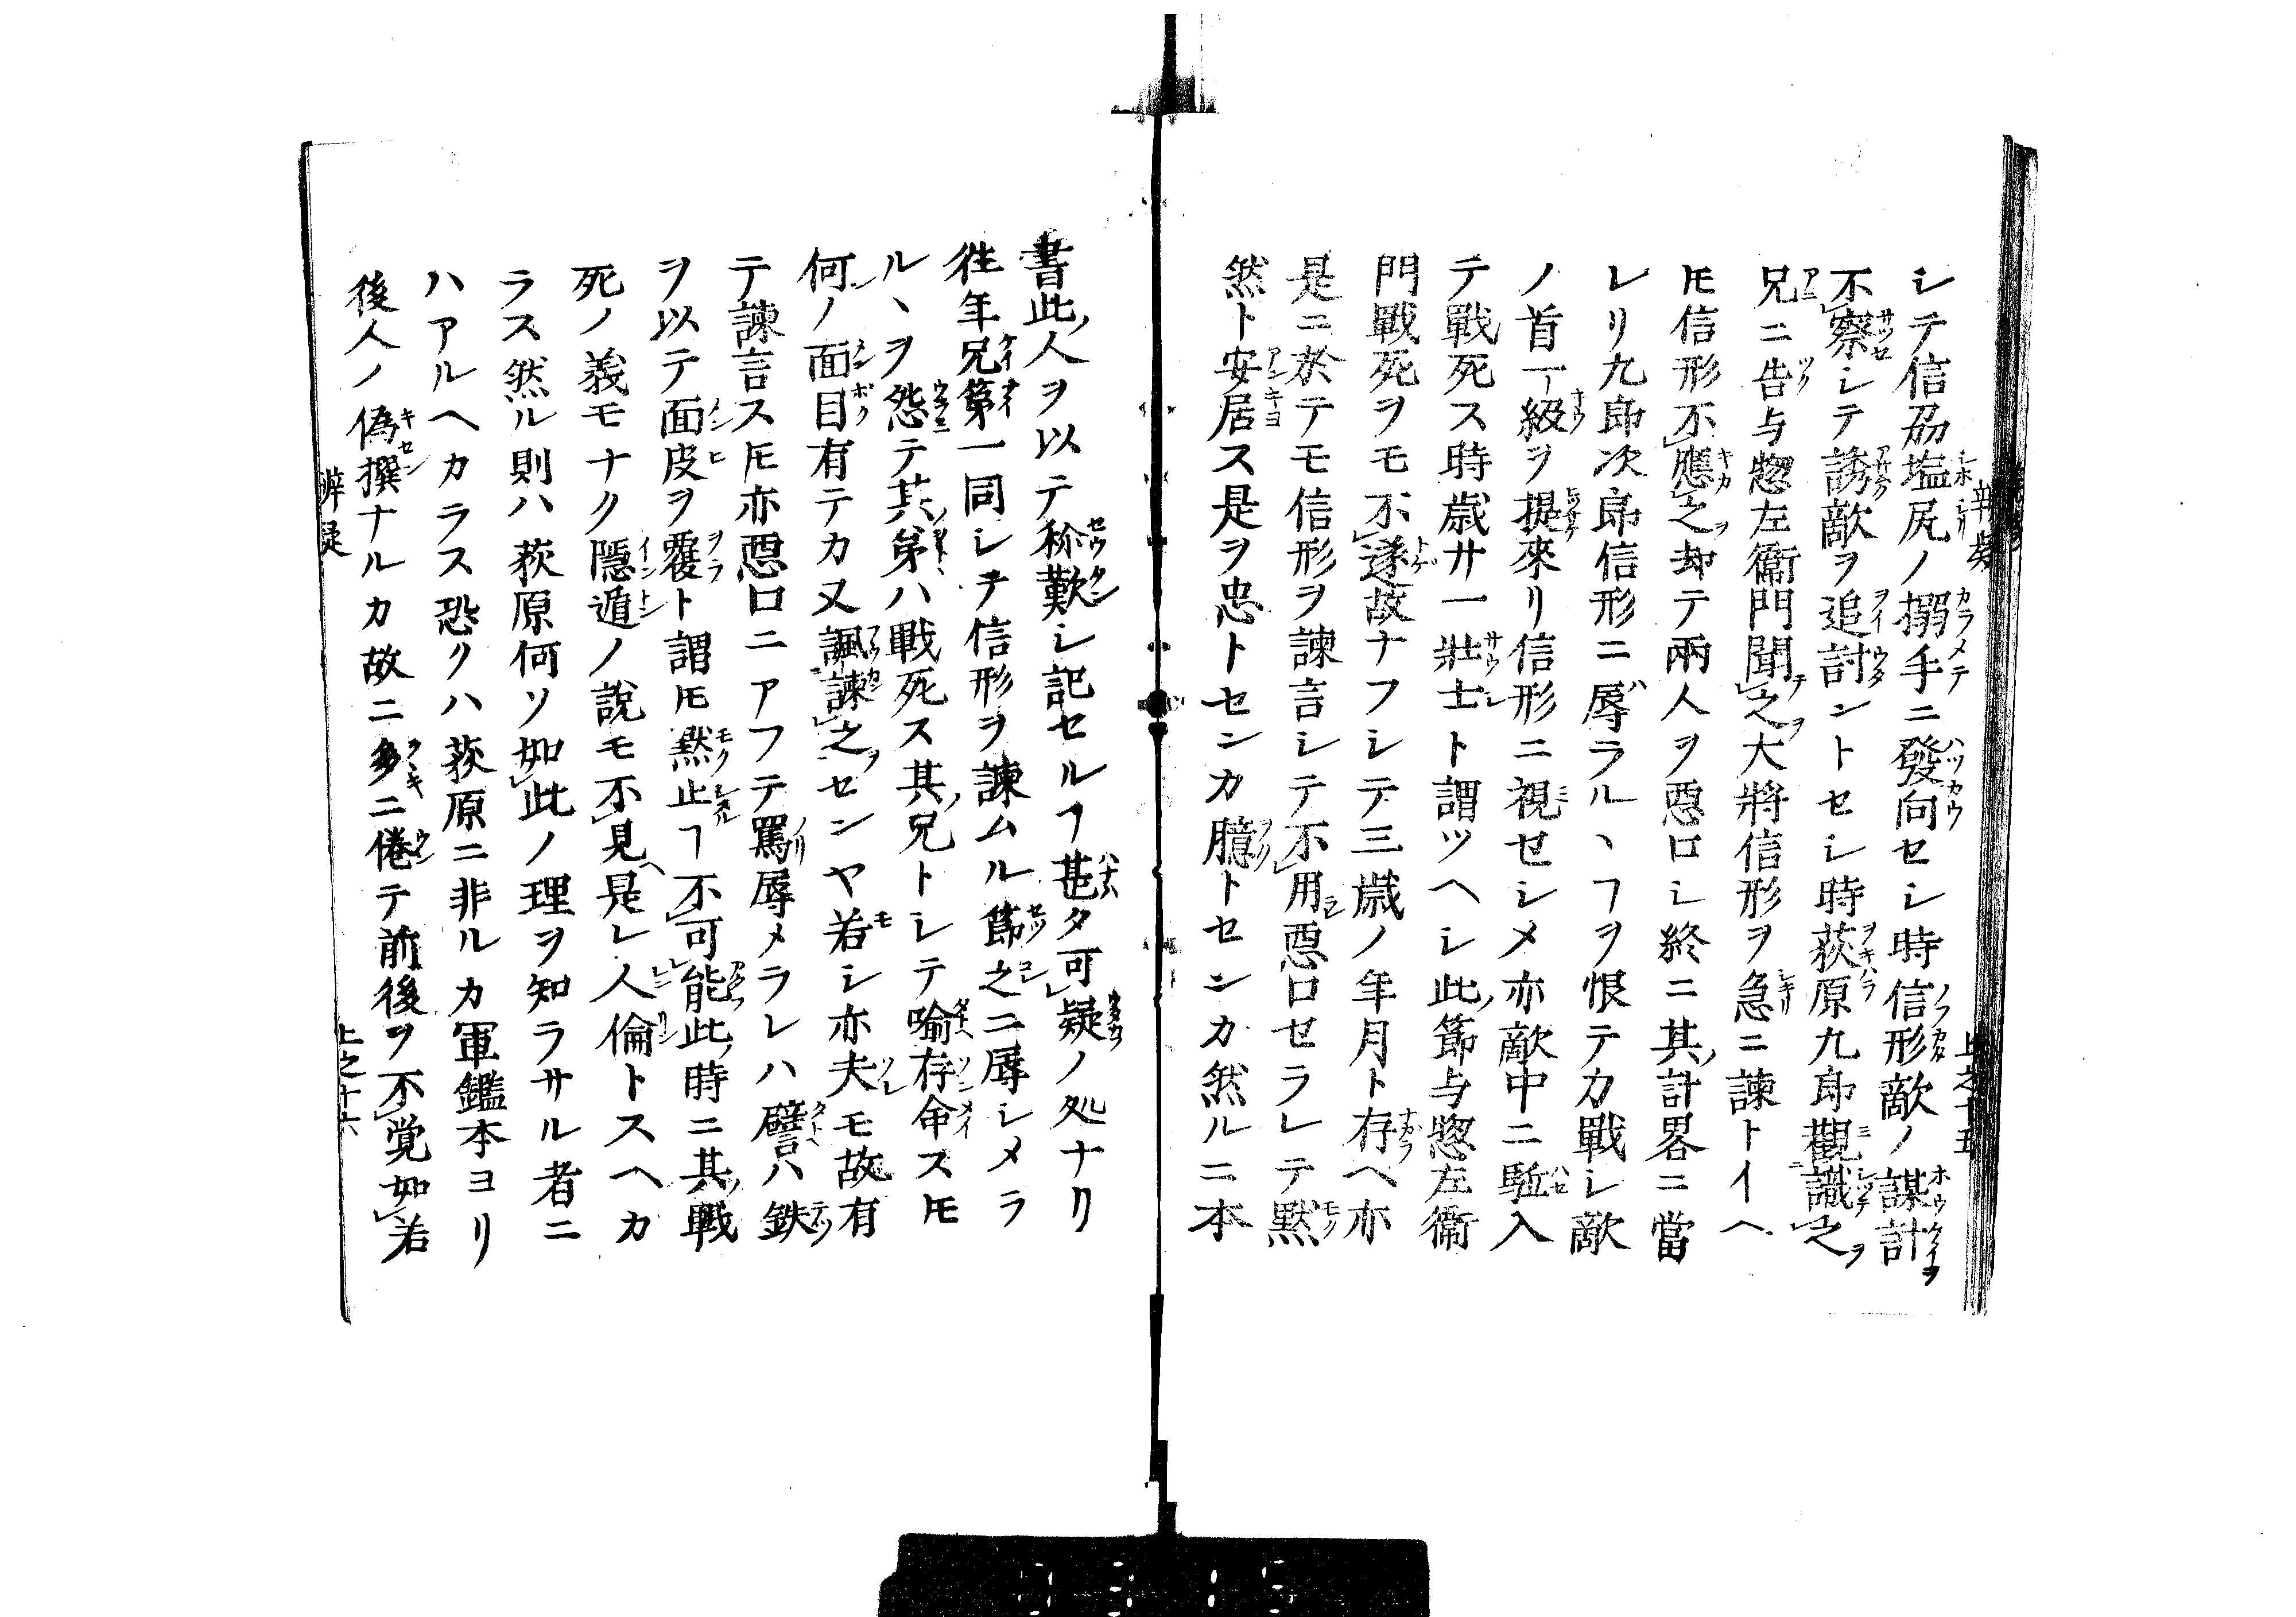 シテ信刕塩尻ノ搦手ニ發向セシ時信形敵ノ謀計
不察シテ誘敵ヲ追討ントセシ時荻原九郎觀識之
兄ニ告与惣左衞門聞之大將信形ヲ急ニ諫トイヘ
𪜈信形不應之却テ兩人ヲ惡口シ終ニ其計畧ニ當
レリ九郎次郎信形ニ辱ラルヽヿヲ恨テカ戰シ敵
ノ首一級ヲ提來リ信形ニ視セシメ亦敵中ニ駈入
テ戰死ス時歳廿一壯士ト謂ツヘシ此節与惣左衞
門戰死ヲモ不遂故ナフシテ三歳ノ年月ト存ヘ亦
是ニ於テモ信形ヲ諫言シテ不用惡口セラレテ黙
然ト安居ス是ヲ忠トセンカ臆トセンカ然ルニ本
書此人ヲ以テ称歎シ記セルヿ甚タ可疑ノ処ナリ
徃年兄第一同シテ信形ヲ諫ムル節之ニ辱シメラ
ルヽヲ怨テ其弟ハ戰死ス其兄トシテ喩存命ス𪜈
何ノ面目有テカ又諷諫之センヤ若シ亦夫モ故有
テ諫言ス𪜈亦惡口ニアフテ罵辱メラレハ譬ハ鉄
ヲ以テ面皮ヲ覆ト謂𪜈黙止ヿ不可能此時ニ其戰
死ノ義モナク隱遁ノ說モ不見是レ人倫トスヘカ
ラス然ル則ハ荻原何ソ如此ノ理ヲ知ラサル者ニ
ハアルヘカラス恐クハ荻原ニ非ルカ軍鑑本ヨリ
後人ノ偽撰ナルカ故ニ多ニ倦テ前後ヲ不覚如若
辨疑
上之十六